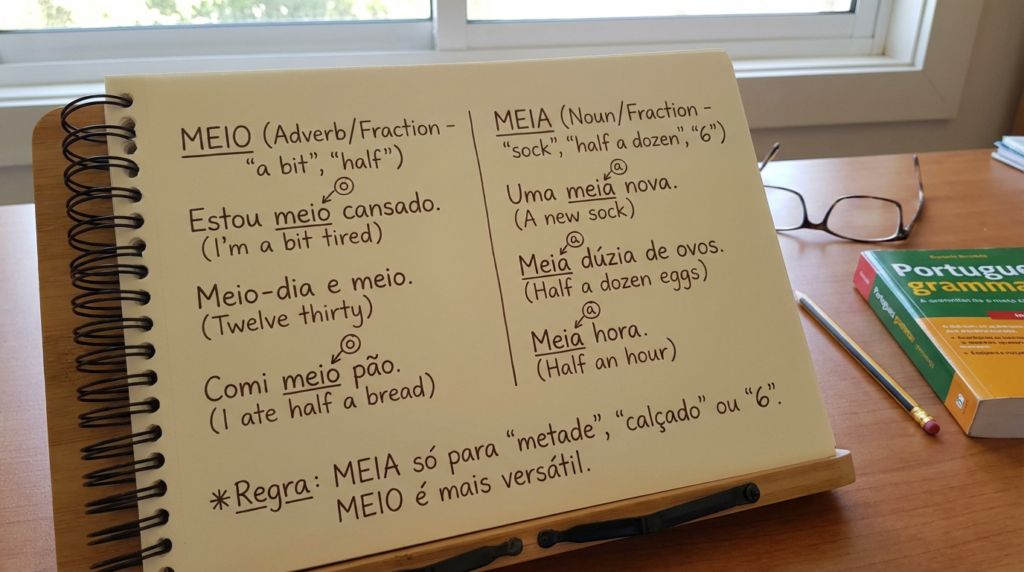 MEIO (Adverb/Fraction –
"a bit", "half")
o
Estou meio cansado.
(I'm a bit tired)
Meio-dia e meio.
(Twelve thirty)
o
Comi meio pão.
(I ate half a bread)
MEIA (Noun/Fraction –
"sock", "half a dozen", "6")
a
Uma meia nova.
(A new sock)
a
Meia dúzia de ovos.
(Half a dozen eggs)
a
Meia hora.
(Half an hour)
*Regra: MEIA só para "metade", "calçado" ou "6".
MEIO é mais versátil.
Portugue
gramma